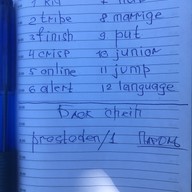 2 tribe 8 marrige
3 finish 9 put
4 crisp 10 junior
5 online 11 jump
6 alert 12 language
prostoden/1